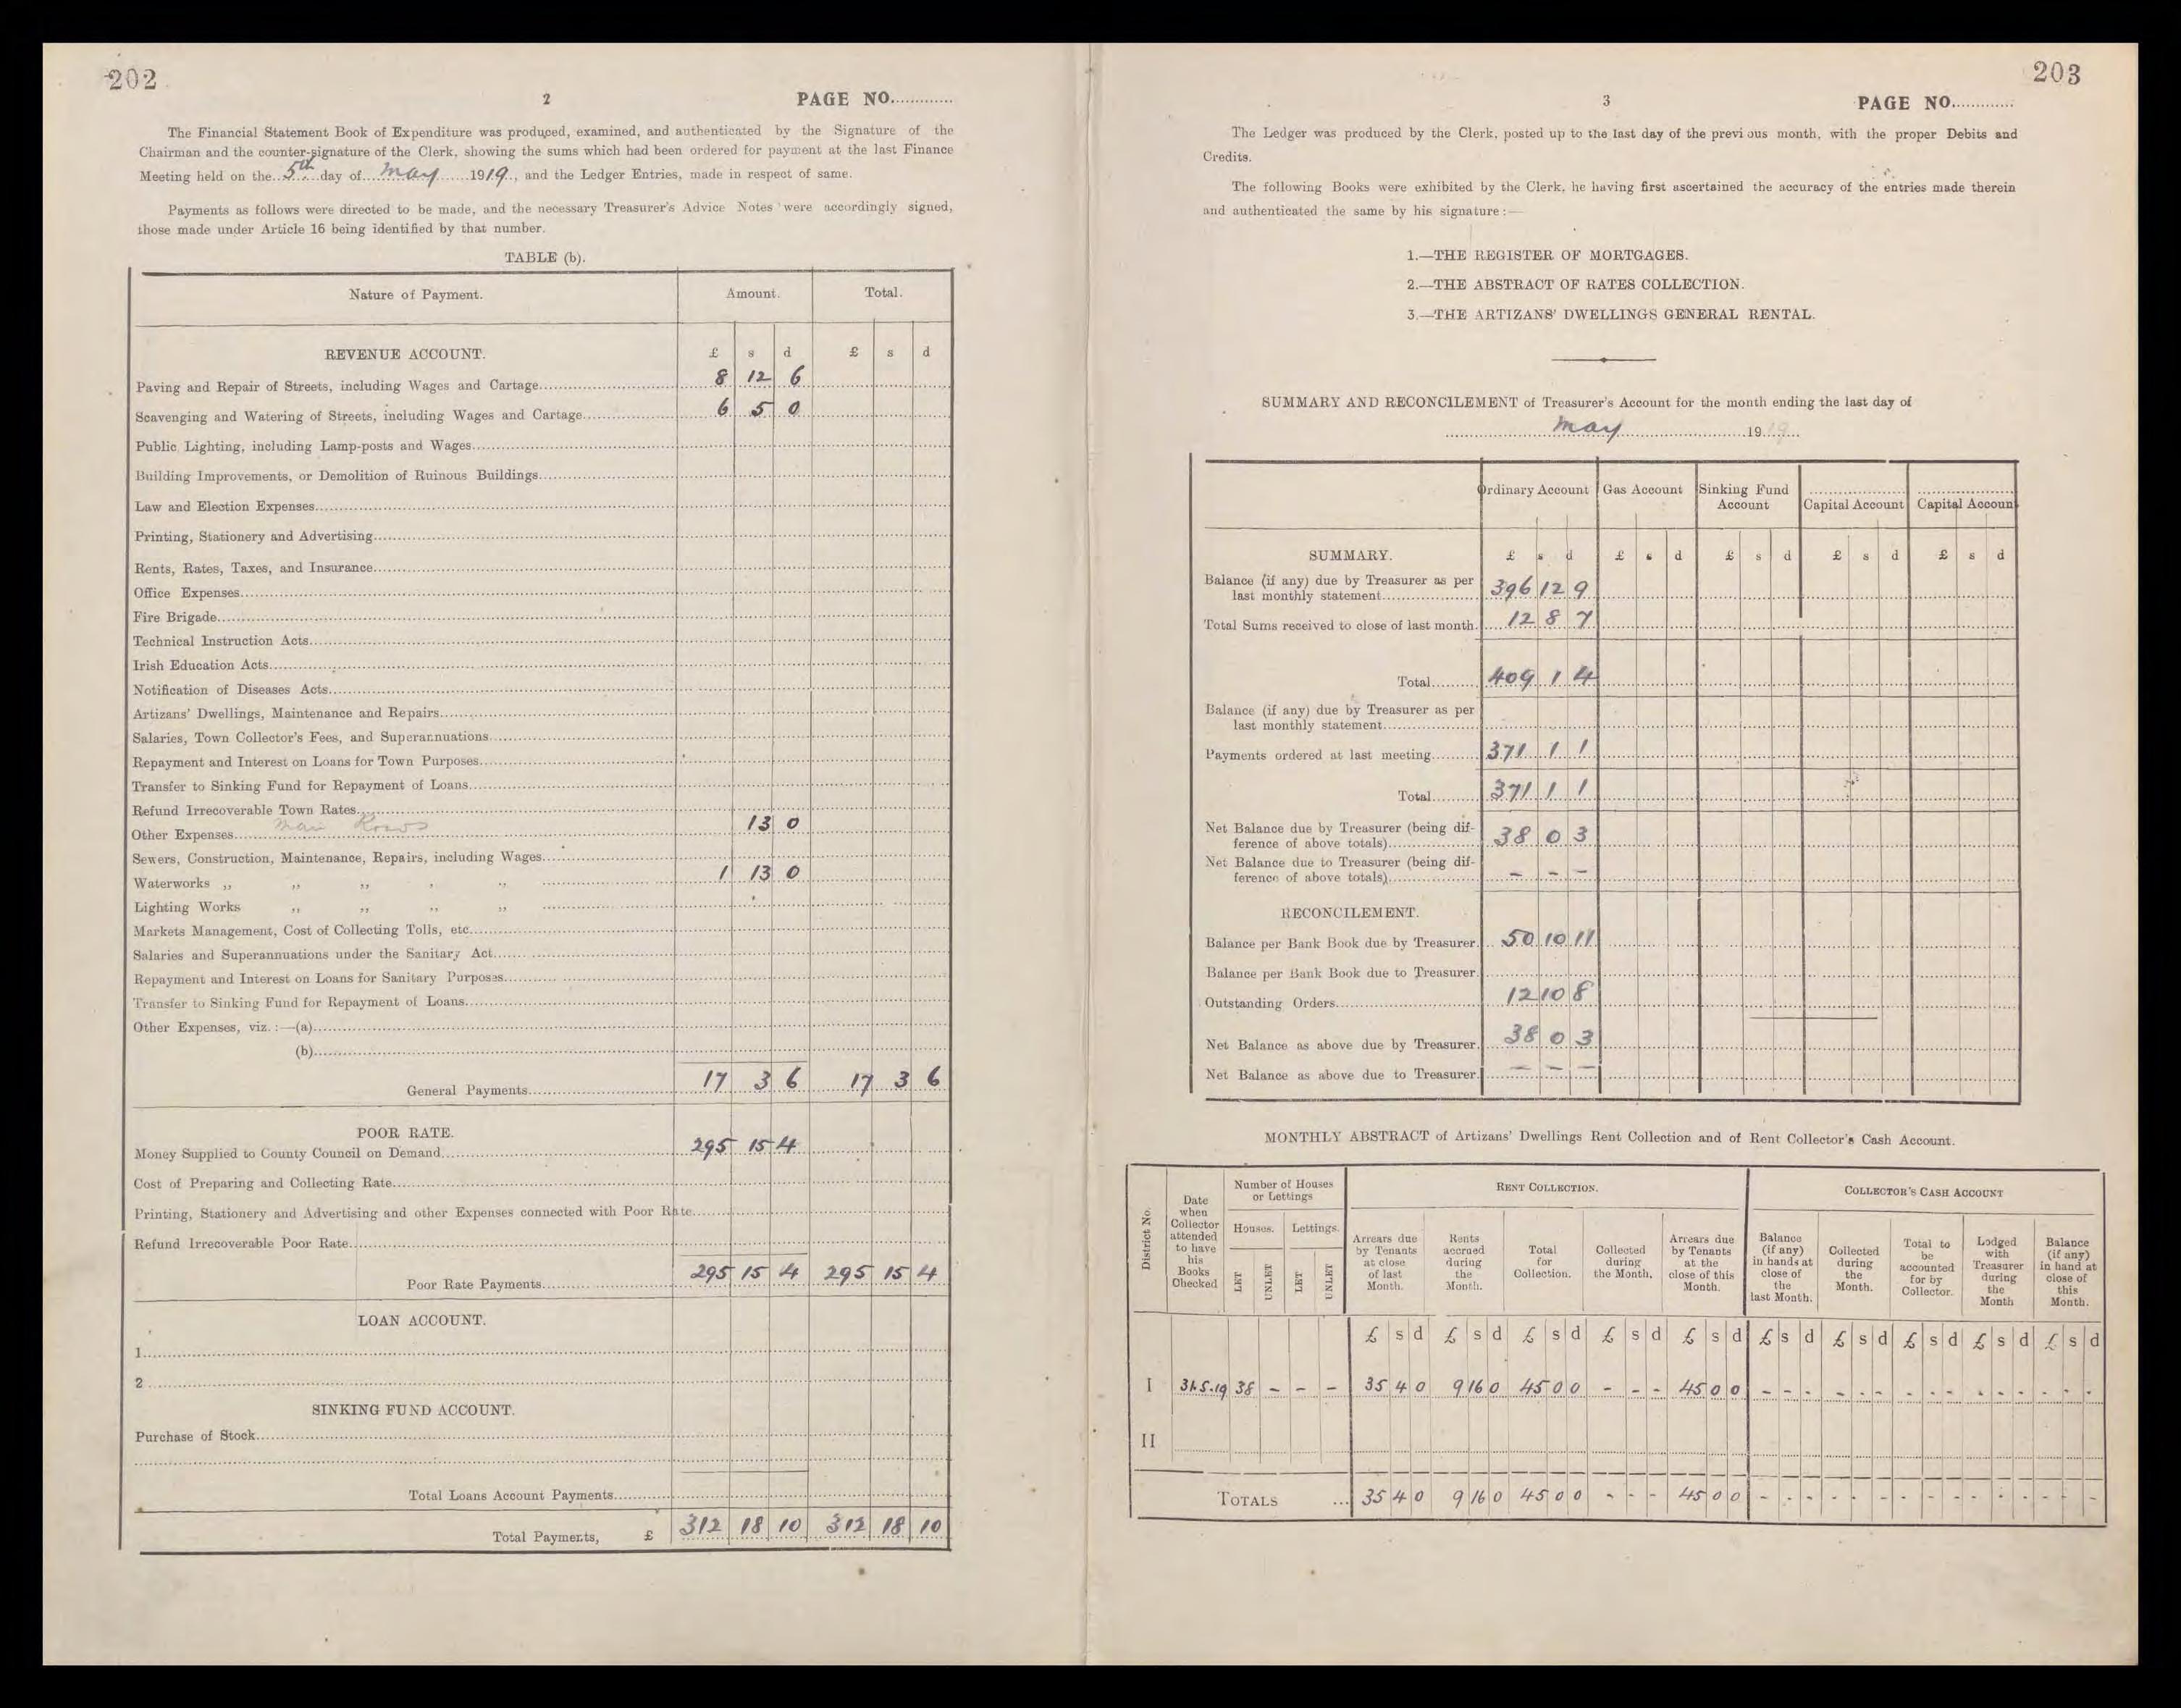 202
2 PAGE NO.............
The Financial Statement Book of Expenditure was produced, examined, and authenticated by the Signature of the
Chairman and the counter-signature of the Clerk, showing the sums which had been ordered for payment at the last Finance
Meeting held on the 5th day of May 1919, and the Ledger Entries, made in respect of same.
Payments as follows were directed to be made, and the necessary Treasurer's Advice Notes were accordingly signed,
those made under Article 16 being identified by that number.
TABLE (b).
Nature of Payment. Amount. Total.
REVENUE ACCOUNT. £ s d £ s d
Paving and Repair of Streets, including Wages and Cartage 8 12 6
Scavenging and Watering of Streets, including Wages and Cartage 6 5 0
Public Lighting, including Lamp-posts and Wages
Building Improvements, or Demolition of Ruinous Buildings
Law and Election Expenses
Printing, Stationery and Advertising
Rents, Rates, Taxes, and Insurance
Office Expenses
Fire Brigade
Technical Instruction Acts
Irish Education Acts
Notification of Diseases Acts
Artizans' Dwellings, Maintenance and Repairs
Salaries, Town Collector's Fees, and Superannuations
Repayment and Interest on Loans for Town Purposes
Transfer to Sinking Fund for Repayment of Loans
Refund Irrecoverable Town Rates
Other Expenses 13 0
Sewers, Construction, Maintenance, Repairs, including Wages
Waterworks ,, ,, ,, , ,, 1 13 0
Lighting Works ,, ,, ,, ,,
Markets Management, Cost of Collecting Tolls, etc
Salaries and Superannuations under the Sanitary Act
Repayment and Interest on Loans for Sanitary Purposes
Transfer to Sinking Fund for Repayment of Loans
Other Expenses, viz. :—(a)
(b)
General Payments 17 3 6 17 3 6
POOR RATE.
Money Supplied to County Council on Demand 295 15 4
Cost of Preparing and Collecting Rate
Printing, Stationery and Advertising and other Expenses connected with Poor Rate
Refund Irrecoverable Poor Rate
Poor Rate Payments 295 15 4 295 15 4
LOAN ACCOUNT.
1
2
SINKING FUND ACCOUNT.
Purchase of Stock
Total Loans Account Payments
Total Payments, £ 312 18 10 312 18 10
203
3 PAGE NO.............
The Ledger was produced by the Clerk, posted up to the last day of the previous month, with the proper Debits and
Credits.
The following Books were exhibited by the Clerk, he having first ascertained the accuracy of the entries made therein
and authenticated the same by his signature :—
1.—THE REGISTER OF MORTGAGES.
2.—THE ABSTRACT OF RATES COLLECTION.
3.—THE ARTIZANS' DWELLINGS GENERAL RENTAL.
SUMMARY AND RECONCILEMENT of Treasurer's Account for the month ending the last day of
May 1919
Ordinary Account Gas Account Sinking Fund Account Capital Account Capital Accoun
SUMMARY. £ s d £ s d £ s d £ s d £ s d
Balance (if any) due by Treasurer as per
last monthly statement 396 12 9
Total Sums received to close of last month. 12 8 7
Total 409 1 4
Balance (if any) due by Treasurer as per
last monthly statement
Payments ordered at last meeting 371 1 1
Total 371 1 1
Net Balance due by Treasurer (being dif-
ference of above totals) 38 0 3
Net Balance due to Treasurer (being dif-
ference of above totals) - - -
RECONCILEMENT.
Balance per Bank Book due by Treasurer. 50 10 11
Balance per Bank Book due to Treasurer.
Outstanding Orders 12 10 8
Net Balance as above due by Treasurer. 38 0 3
Net Balance as above due to Treasurer. — — —
MONTHLY ABSTRACT of Artizans' Dwellings Rent Collection and of Rent Collector's Cash Account.
District No. Date when Collector attended to have his Books Checked Number of Houses or Lettings RENT COLLECTION. COLLECTOR'S CASH ACCOUNT
Houses. Lettings.
LET UNLET LET UNLET
Arrears due by Tenants at close of last Month. Rents accrued during the Month. Total for Collection. Collected during the Month. Arrears due by Tenants at the close of this Month. Balance (if any) in hands at close of the last Month. Collected during the Month. Total to be accounted for by Collector. Lodged with Treasurer during the Month Balance (if any) in hand at close of this Month.
£ s d £ s d £ s d £ s d £ s d £ s d £ s d £ s d £ s d £ s d
I 31.5.19 38 - - - 35 4 0 9 16 0 45 0 0 - - - 45 0 0 - - - - - - - - - - - - - - -
II
TOTALS ... 35 4 0 9 16 0 45 0 0 - - - 45 0 0 - - - - - - - - - - - - - - -